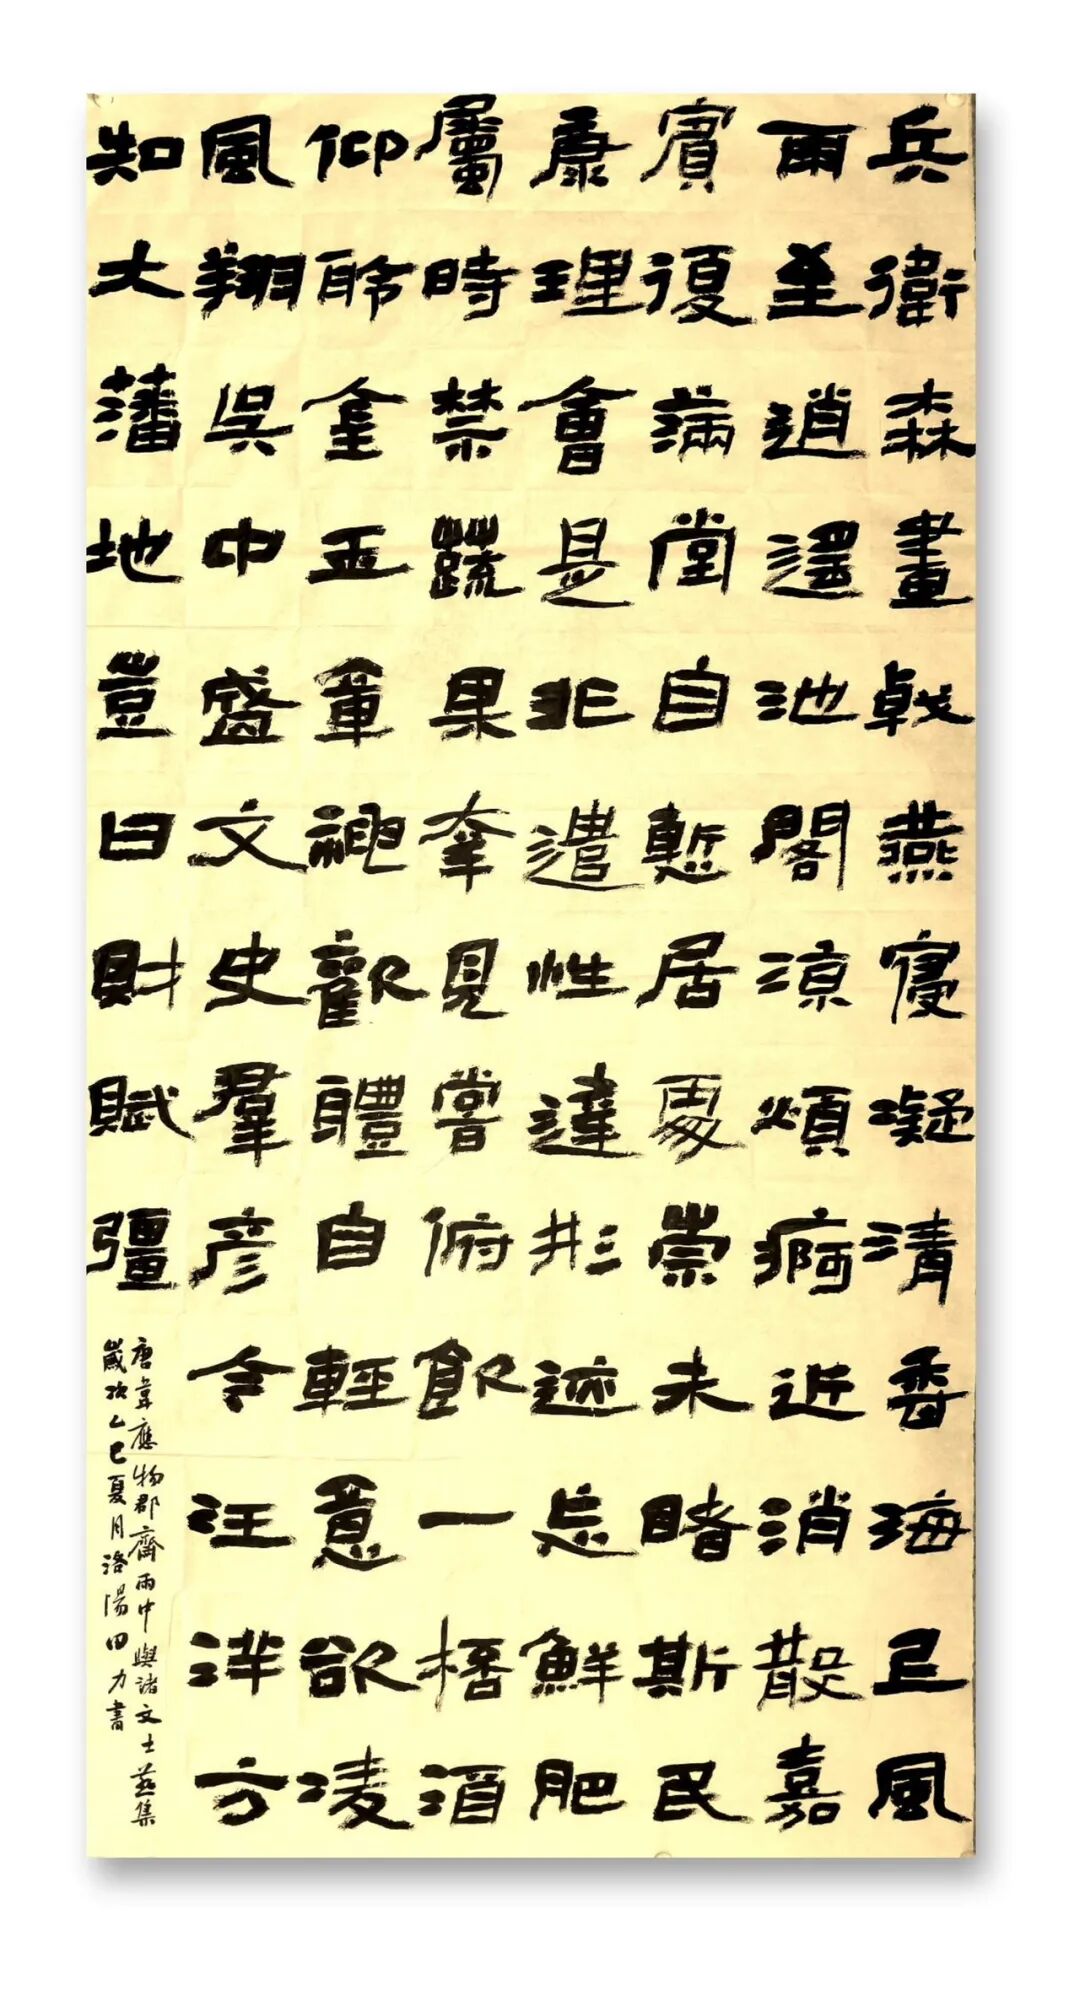 兵衛森畫戟燕寢凝清香海上風
雨至逍遙池閣涼煩痾近消散嘉
賓復滿堂自慙居處崇未睹斯民
康理會是非遣性達形迹忘鮮肥
屬時禁蔬果幸見嘗俯飲一桮酒
仰聆金玉章神歡體自輕意欲凌
風翔吳中盛文史羣彥今汪洋方
知大藩地豈曰財賦彊
唐韋應物郡齋雨中與諸文士燕集
歲次乙巳夏月洛陽田力書